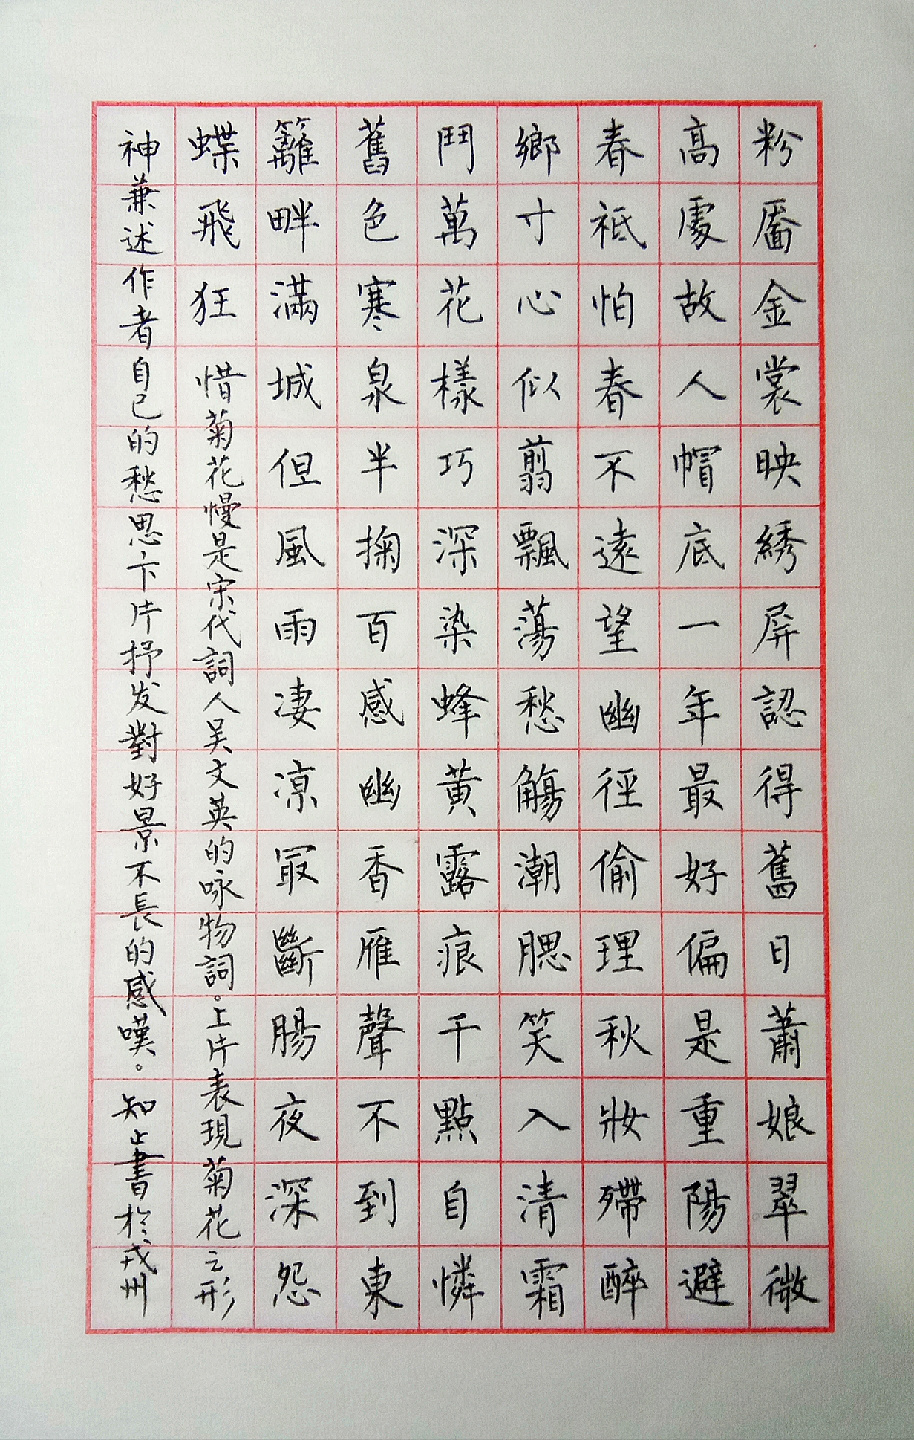 粉靨金裳映綉屏認得舊日蕭娘翠微
高處故人帽底一年最好偏是重陽避
春祗怕春不遠望幽徑偷理秋妝殢醉
鄉寸心似翦飄蕩愁觴潮腮笑入清霜
鬥萬花樣巧深染蜂黃露痕千點自憐
舊色寒泉半掬百感幽香雁聲不到東
籬畔滿城但風雨淒涼冣斷腸夜深怨
蝶飛狂 惜菊花慢是宋代詞人吴文英的咏物詞。上片表現菊花之形
神兼述作者自己的愁思下片抒发對好景不長的感嘆。知止書於戎州